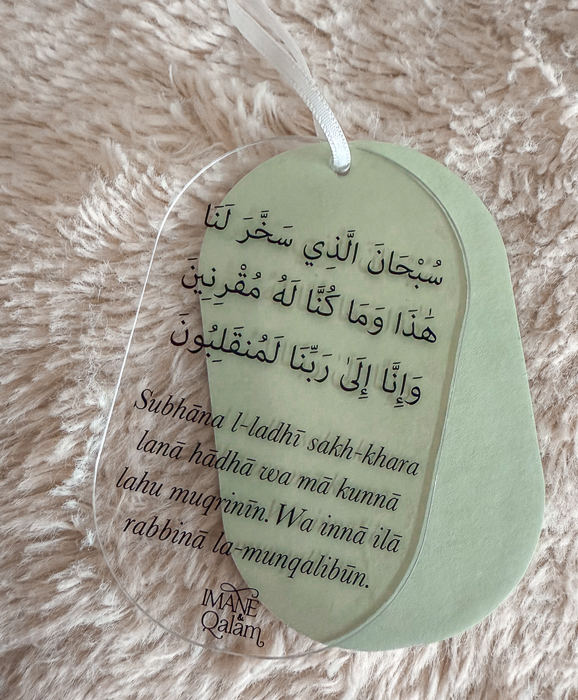 سُبْحَانَ الَّذِي سَخَّرَ لَنَا
هَٰذَا وَمَا كُنَّا لَهُ مُقْرِنِينَ
وَإِنَّا إِلَىٰ رَبِّنَا لَمُنقَلِبُونَ
Subhāna l-ladhī sakh-khara
lanā hādhā wa mā kunnā
lahu muqrinīn. Wa innā ilā
rabbinā la-munqalibūn.
IMANE
&
Qalam